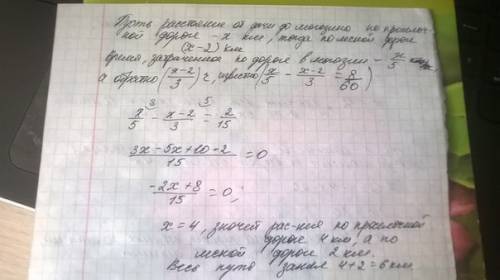 Пусть расстояние от дачи до магазина по просёлоч-
ной дороге - x км, тогда по лесной дороге
(x-2) км
Время, затраченное по дороге в магазин - x/5
а обратно (x-2)/3 ч, (x/5 - (x-2)/3 = 8/60)
x/5 - (x-2)/3 = 2/15
(3x-5x+10-2)/15 = 0
(-2x+8)/15 = 0;
x = 4, значит рас-ния по просёлочной
дороге 4 км, а по
лесной дороге 2 км.
Весь путь занял 4+2=6 км.